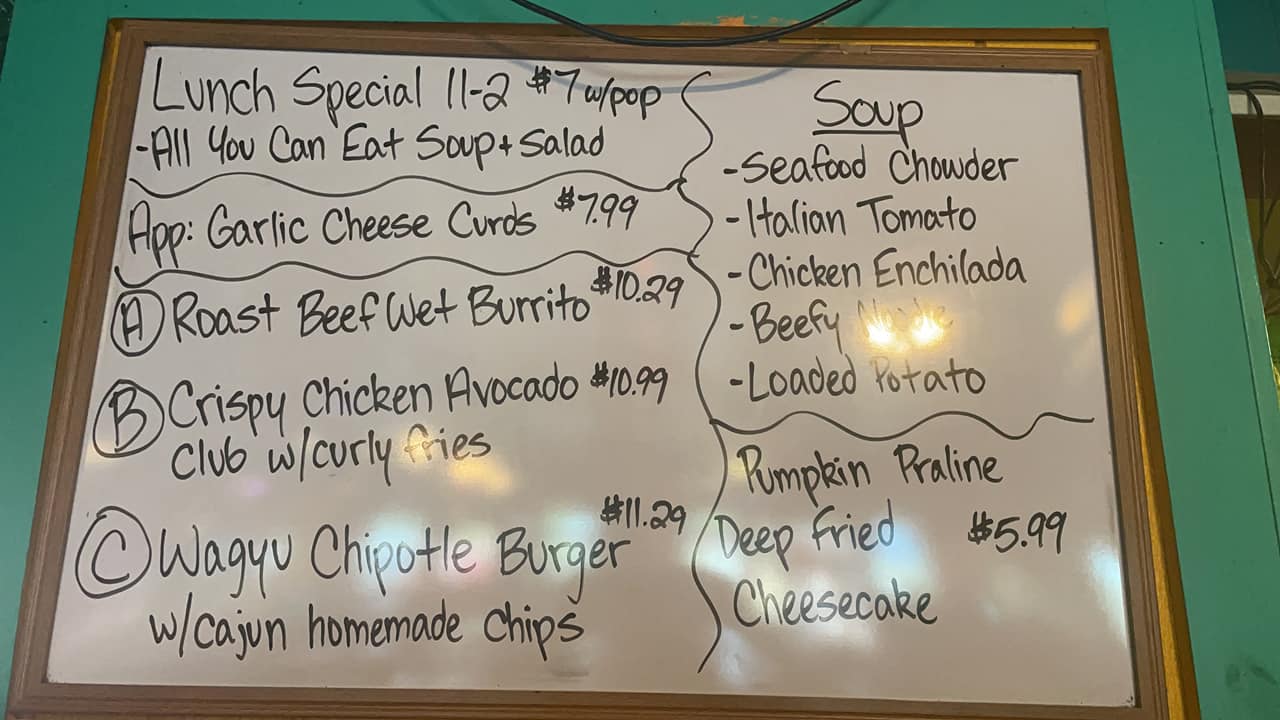 Lunch Special 11-2 $7 w/pop
-All You Can Eat Soup + Salad
App: Garlic Cheese Curds $7.99
(A) Roast Beef Wet Burrito $10.29
(B) Crispy Chicken Avocado $10.99
Club w/curly fries
(C) Wagyu Chipotle Burger $11.29
w/cajun homemade chips
Soup
-Seafood Chowder
-Italian Tomato
-Chicken Enchilada
-Beefy
-Loaded Potato
Pumpkin Praline
Deep Fried $5.99
Cheesecake